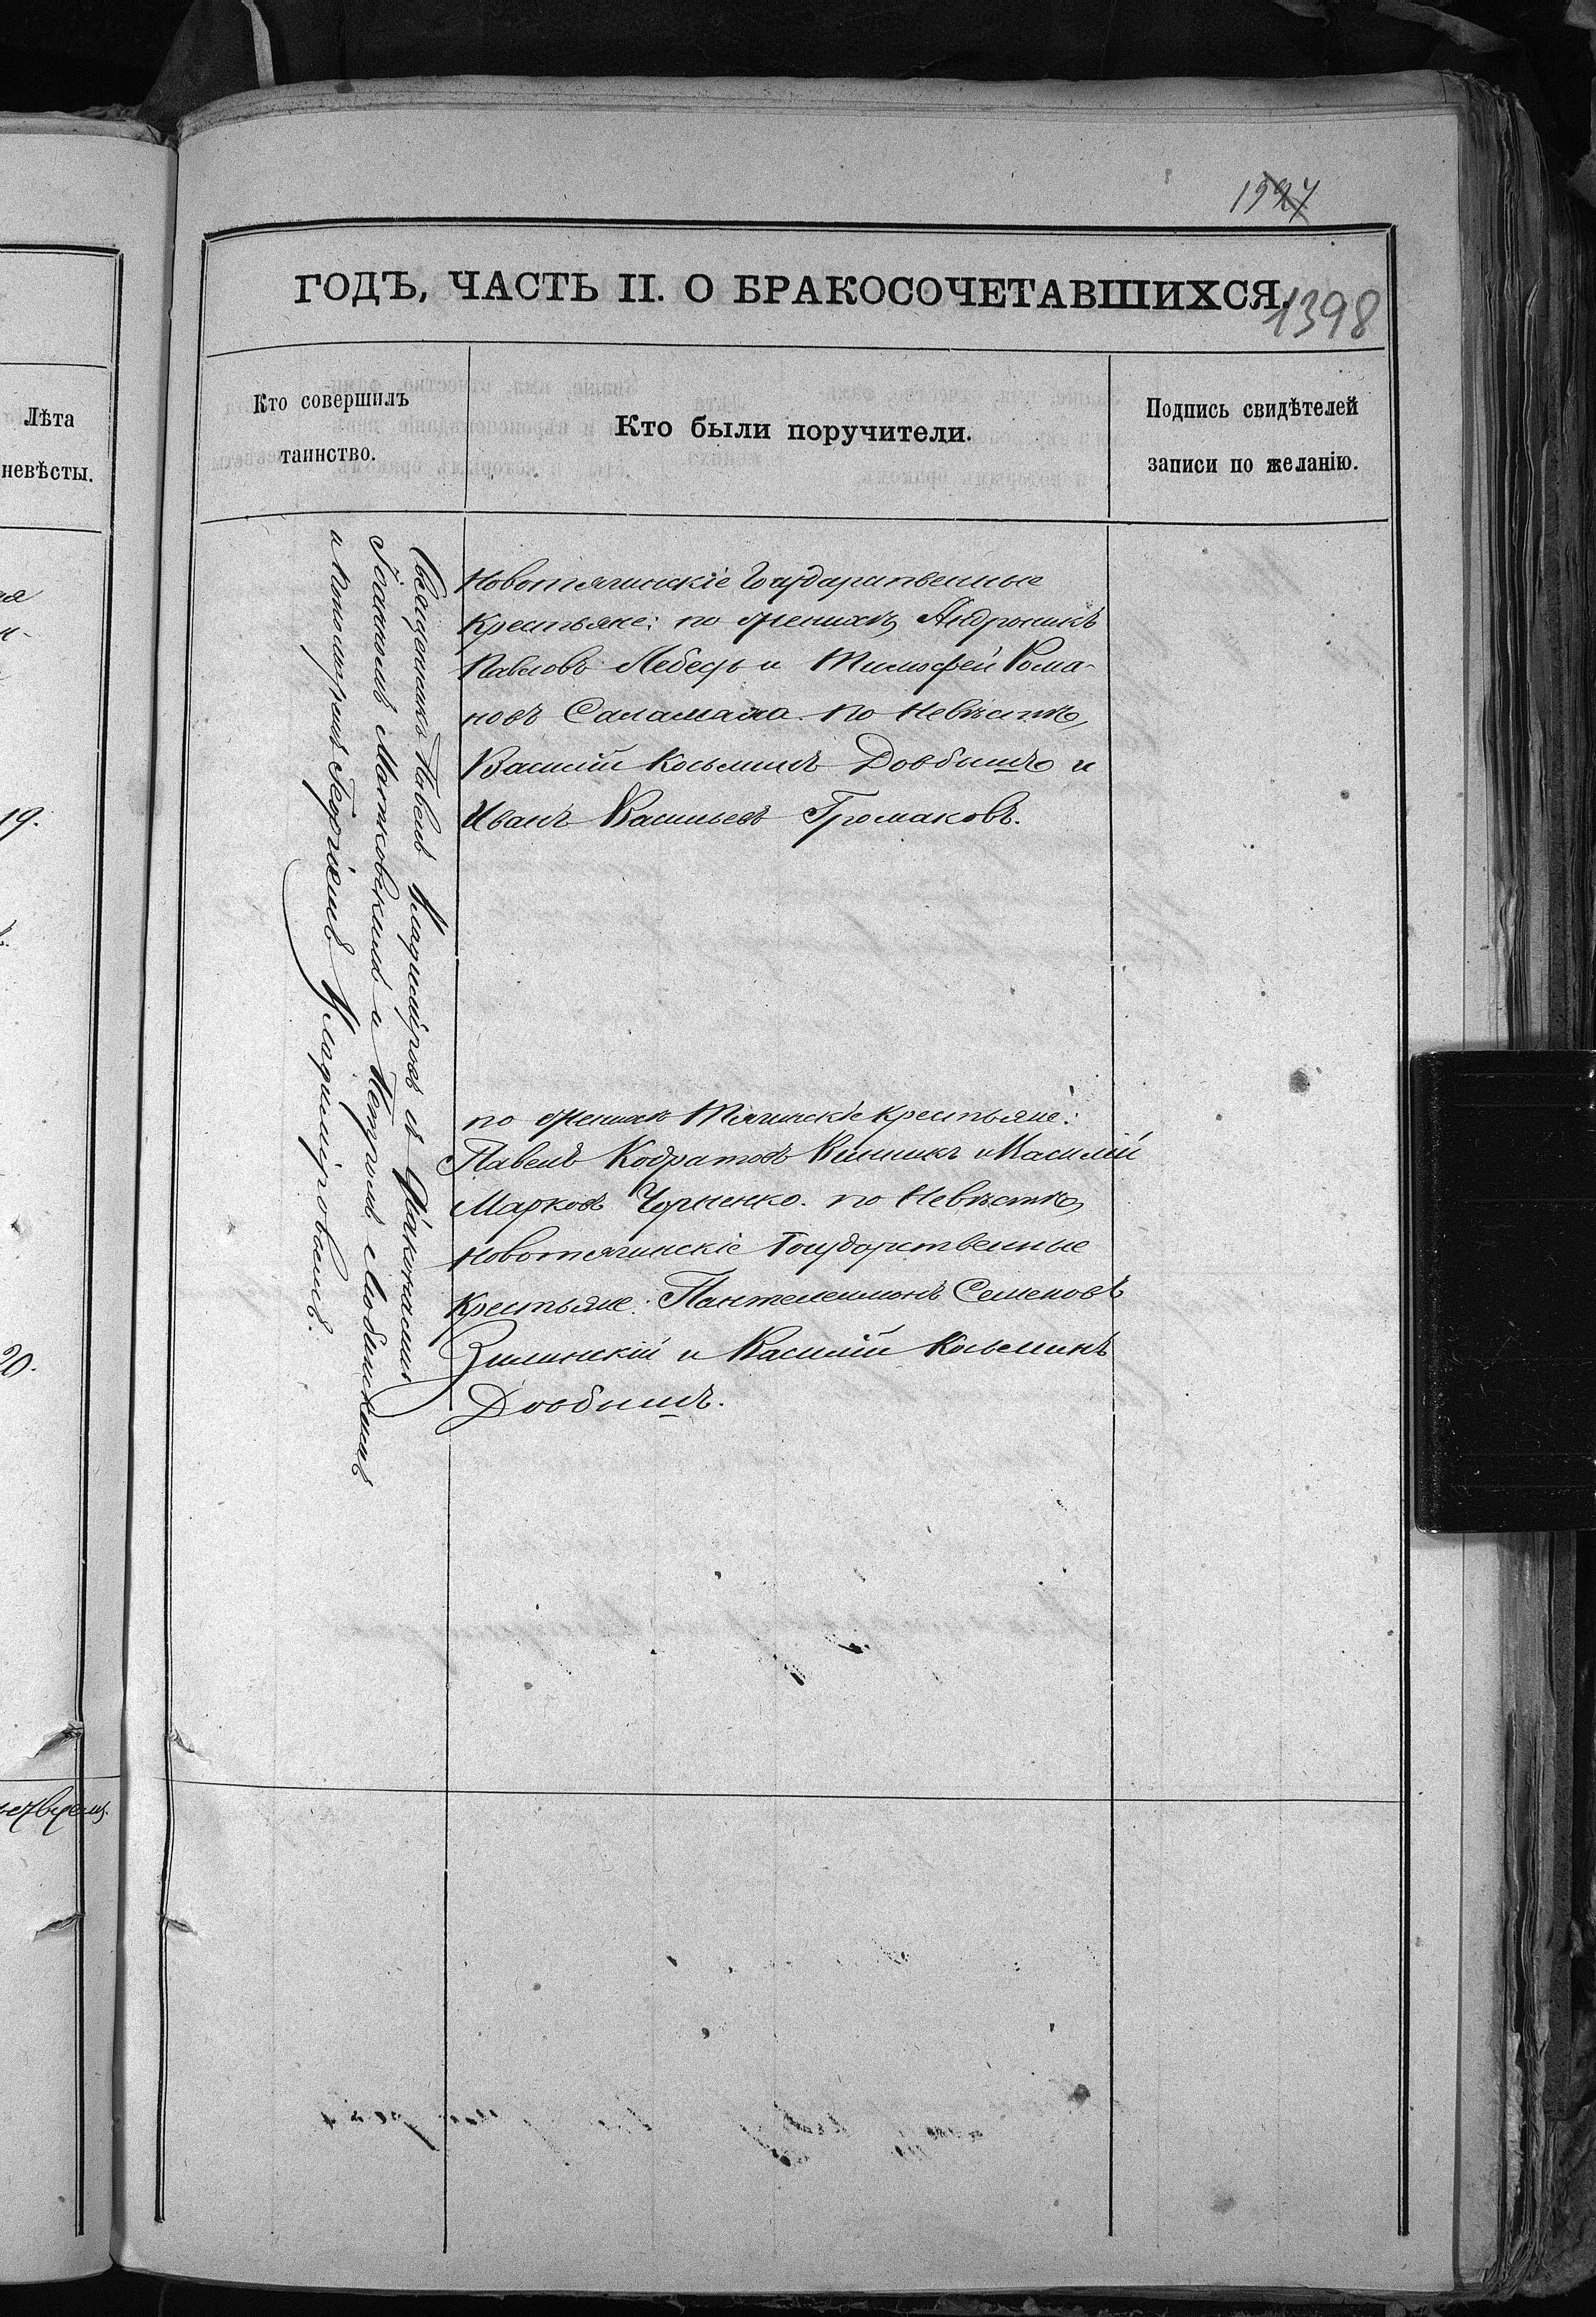 1397
ГОДЪ, ЧАСТЬ II. О БРАКОСОЧЕТАВШИХСЯ.
1398
Лѣта
невѣсты.
Кто совершилъ
таинство.
Кто были поручители.
Подпись свидѣтелей
записи по желанію.
19.
20.
Священникъ Павелъ Владиміровъ съ Діакономъ
Іоанномъ Матковскимъ и
и Пономаремъ Георгіемъ Владиміровымъ.
Новотягинскіе Государственные
Крестьяне: по женихѣ, Андроникъ
Павловъ Лебедь и Тимофей Рома-
новъ Саламаха. По Невѣстѣ,
Василій Косьминъ Довбышъ и
Иванъ Васильевъ Громаковъ.
по женихѣ Тягинскіе крестьяне:
Павелъ Кодратовъ Винникъ и Василій
Марковъ Чорненко. по Невѣстѣ,
Новотягинскіе Государственные
Крестьяне: Пантелеимонъ Семеновъ
Зилинскій и Василій Косьминъ
Довбышъ.